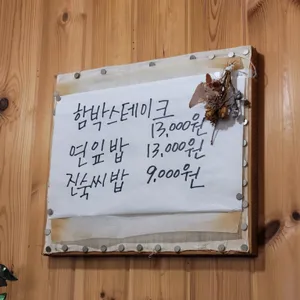 함박스테이크
13,000원
연잎밥 13,000원
진숙씨밥 9,000원